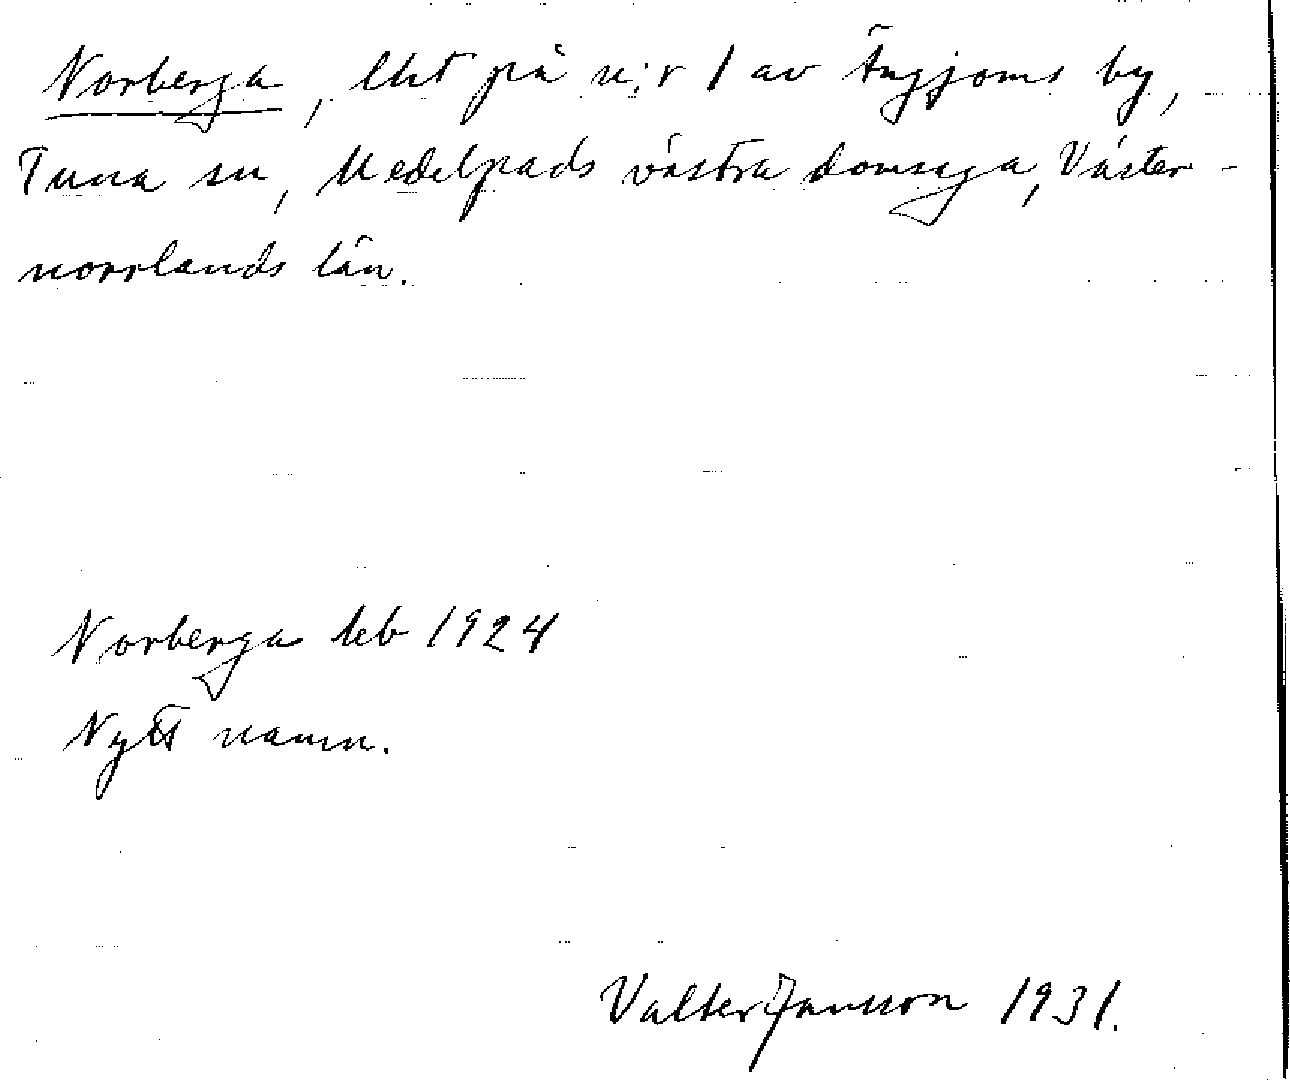 Norberga, lht på n:r 1 av Ängjoms by,
Tuna sn, Medelpads västra domsaga, Väster-
norrlands län.
Norberga leb 1924
Nytt namn.
Valter Jansson 1931.